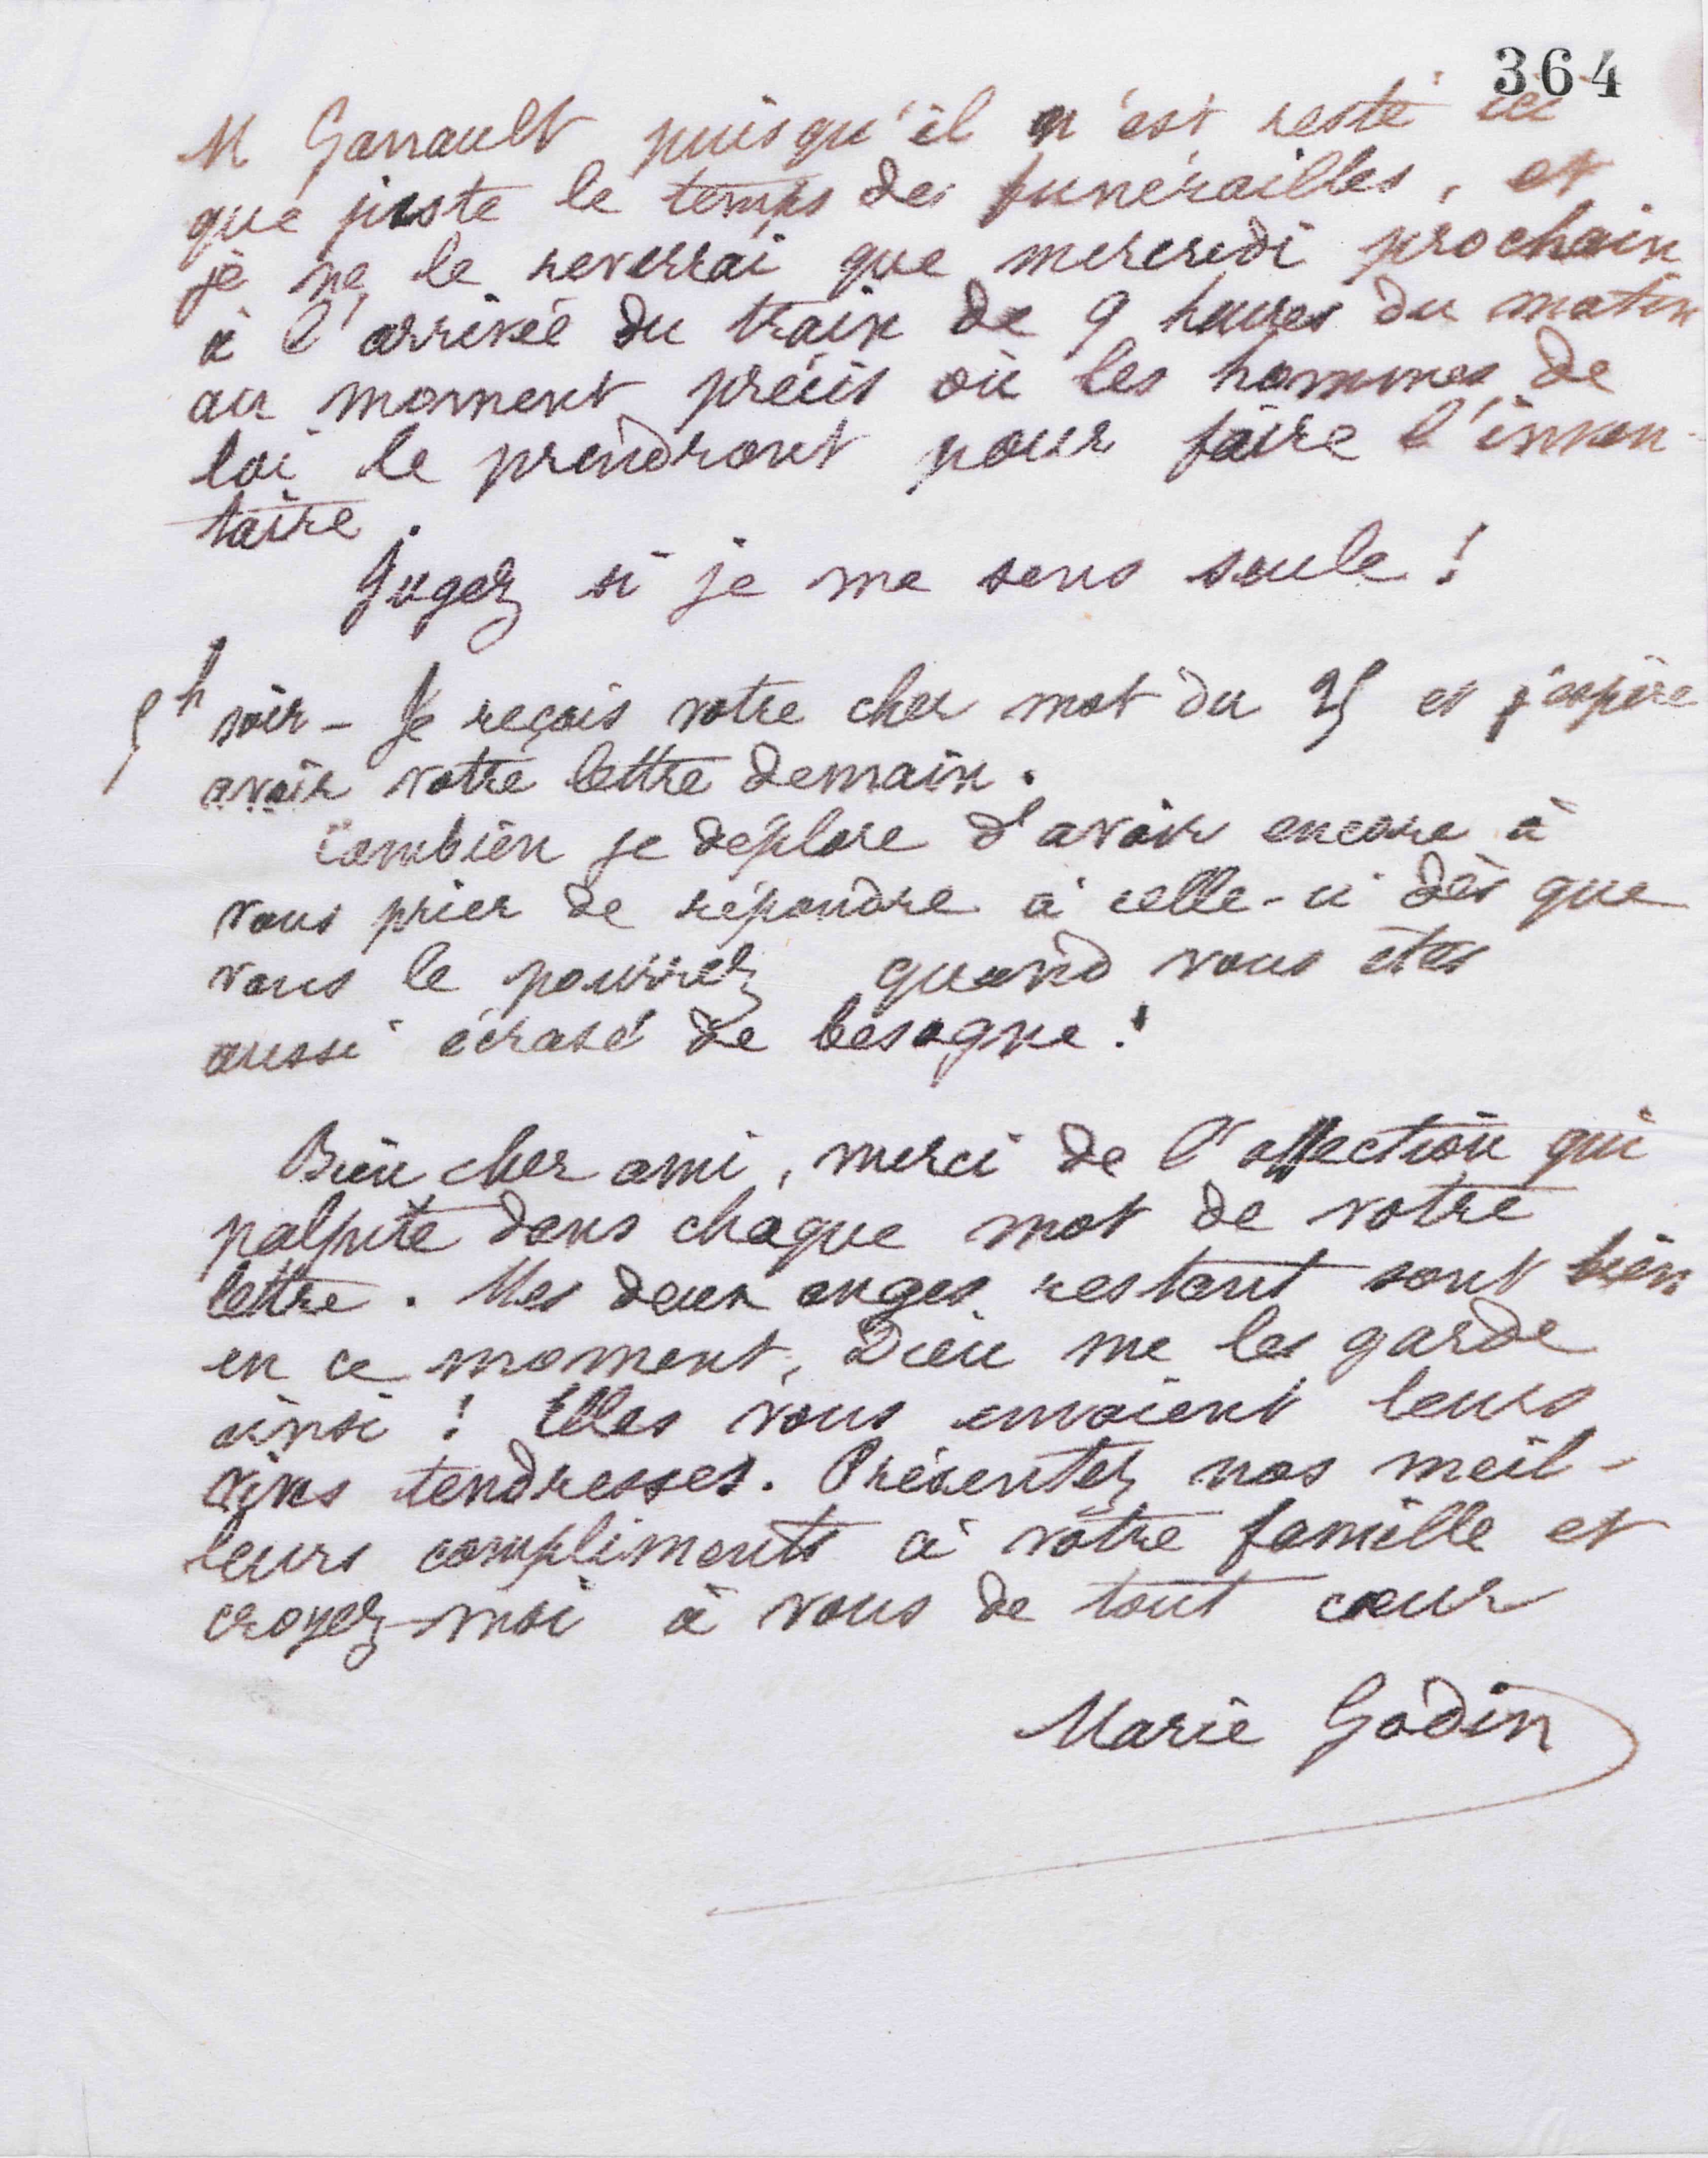 364
M Garrault puisqu'il n'est resté ici
que juste le temps des funérailles, et
je ne le reverrai que mercredi prochain
à l'arrivée du train de 9 heures du matin
au moment précis où les hommes de
loi le prendront pour faire l'inven-
taire.
Jugez si je me sens seule !
5h soir - Je reçois votre cher mot du 25 et j'espère
avoir votre lettre demain.
Combien je déplore d'avoir encore à
vous prier de répondre à celle-ci dès que
vous le pourrez quand vous êtes
aussi écrasé de besogne !
Bien cher ami, merci de l'affection qui
palpite dans chaque mot de votre
lettre. Mes deux anges restant sont bien
en ce moment, Dieu me les garde
ainsi ! Elles vous envoient leurs
vives tendresses. Présentez nos meil-
leurs compliments à votre famille et
croyez-moi à vous de tout cœur
Marie Godin